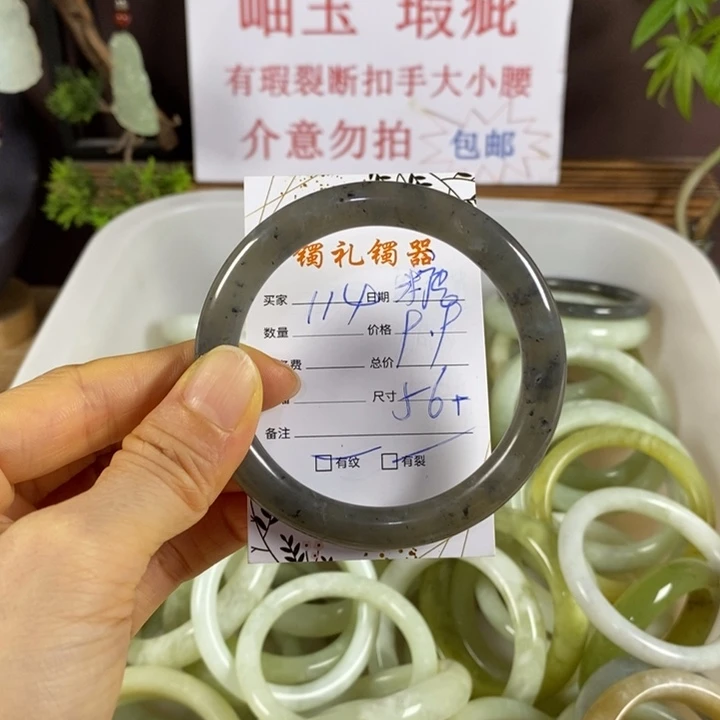 岫玉 瑕疵
有瑕裂断扣手大小腰
介意勿拍 包邮
镯礼镯器
买家 114 日期
数量 价格 9.9
费 总价
尺寸 56+
备注
有纹 有裂